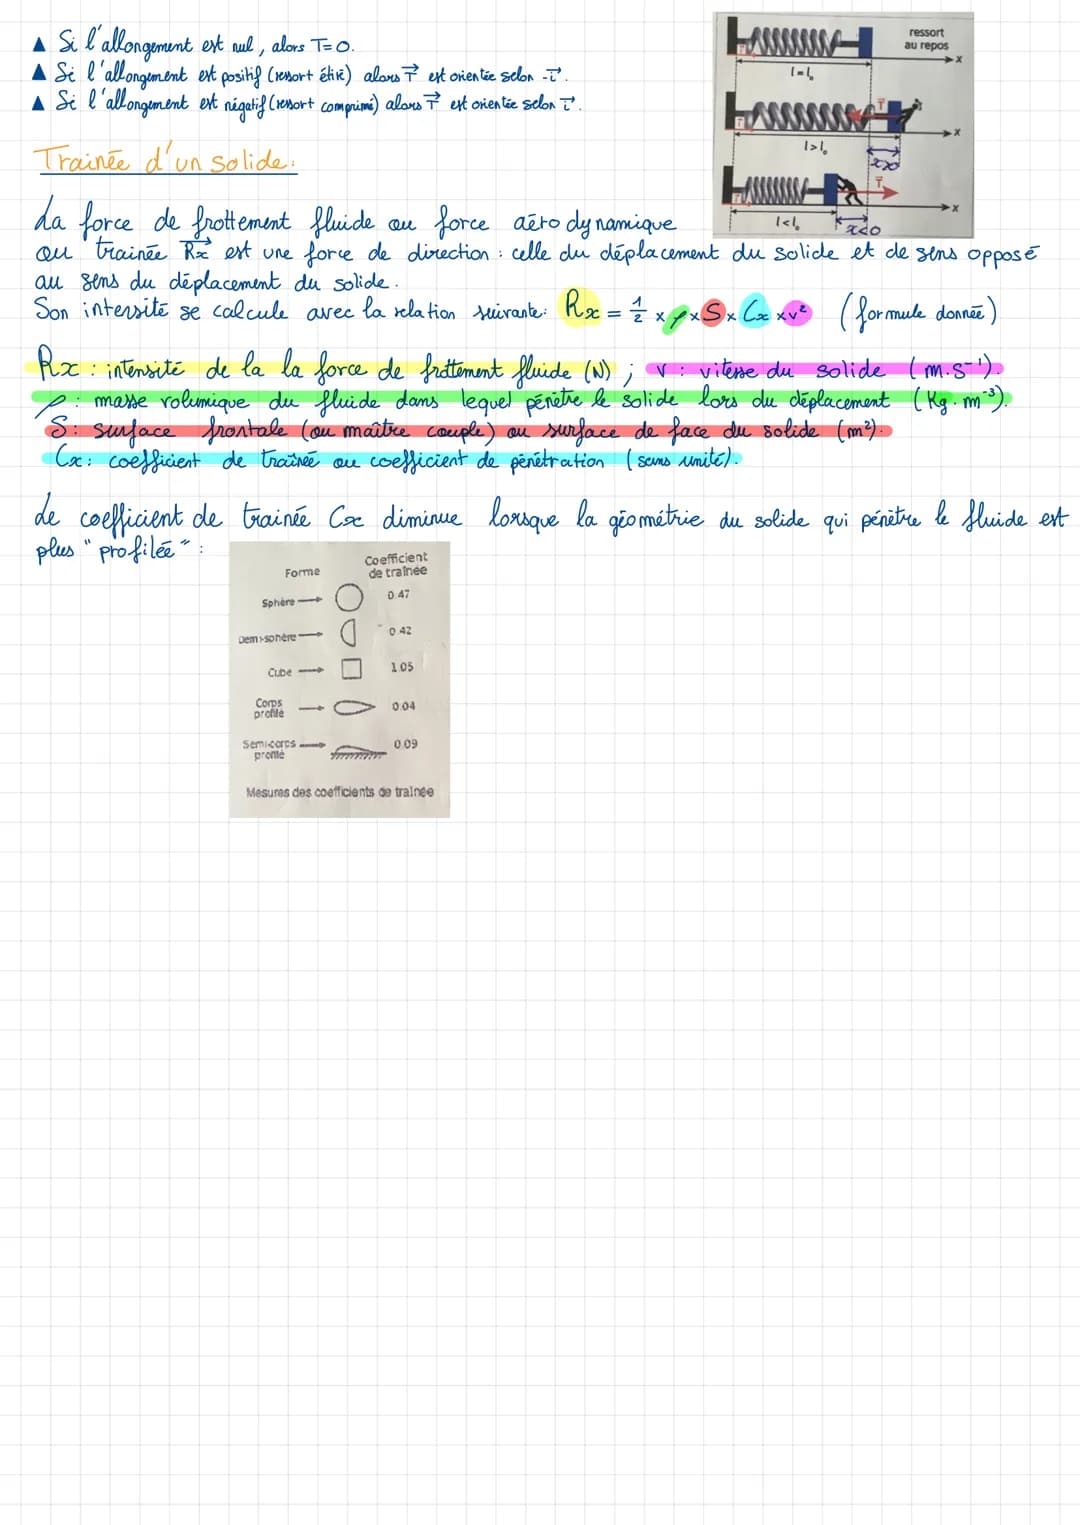 ▲ Si l'allongement est nul, alors T=0.
▲ Si l'allongement est positif (ressort étiré) alors T⃗ est orientée selon -i⃗.
▲ Si l'allongement est négatif (ressort comprimé) alors T⃗ est orientée selon i⃗.
ressort
au repos
x
l=l₀
T⃗
x
l>l₀
x>0
T⃗
x
l<l₀
x<0
Trainée d'un solide:
La force de frottement fluide ou force aérodynamique
ou trainée Rx⃗ est une force de direction : celle du déplacement du solide et de sens opposé
au sens du déplacement du solide.
Son intensité se calcule avec la relation suivante: Rx = 1/2 × ρ × S × Cx × v² (formule donnée)
Rx : intensité de la la force de frottement fluide (N) ; v : vitesse du solide (m.s⁻¹).
ρ : masse volumique du fluide dans lequel pénètre le solide lors du déplacement (Kg.m⁻³).
S : surface frontale (ou maître couple) ou surface de face du solide (m²).
Cx : coefficient de traînée ou coefficient de pénétration (sans unité).
Le coefficient de trainée Cx diminue lorsque la géométrie du solide qui pénètre le fluide est
plus "profilée" :
Forme Coefficient de traînée
Sphère 0.47
Demi-sphère 0.42
Cube 1.05
Corps profilé 0.04
Semi-corps profilé 0.09
Mesures des coefficients de traînée